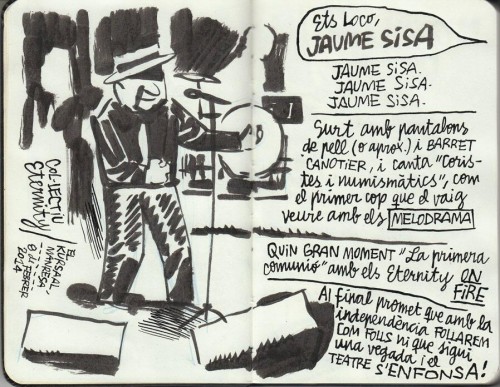 Col·lectiu
Eternity
/El
Kursaal,
Manresa
8 de febrer
2014
Ets Loco,
JAUME SISA
JAUME SISA.
JAUME SISA.
JAUME SISA.
Surt amb pantalons
de pell (o aprox.) i BARRET
CANOTIER, i canta "Coris-
tes i numismàtics", com
el primer cop que el vaig
veure amb els MELODRAMA
QUIN GRAN MOMENT "La primera
comunió" amb els Eternity ON
FiRE
Al final promet que amb la
independència FOLLAREM
COM FOLLS ni que sigui
una vegada i el
TEATRE S'ENFONSA!